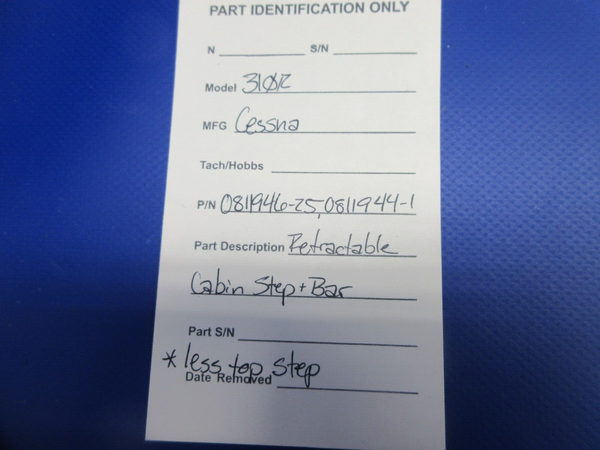 PART IDENTIFICATION ONLY
N S/N
Model 310R
MFG Cessna
Tach/Hobbs
P/N 0811946-25, 0811944-1
Part Description Retractable
Cabin Step + Bar
Part S/N
* less top step
Date Removed